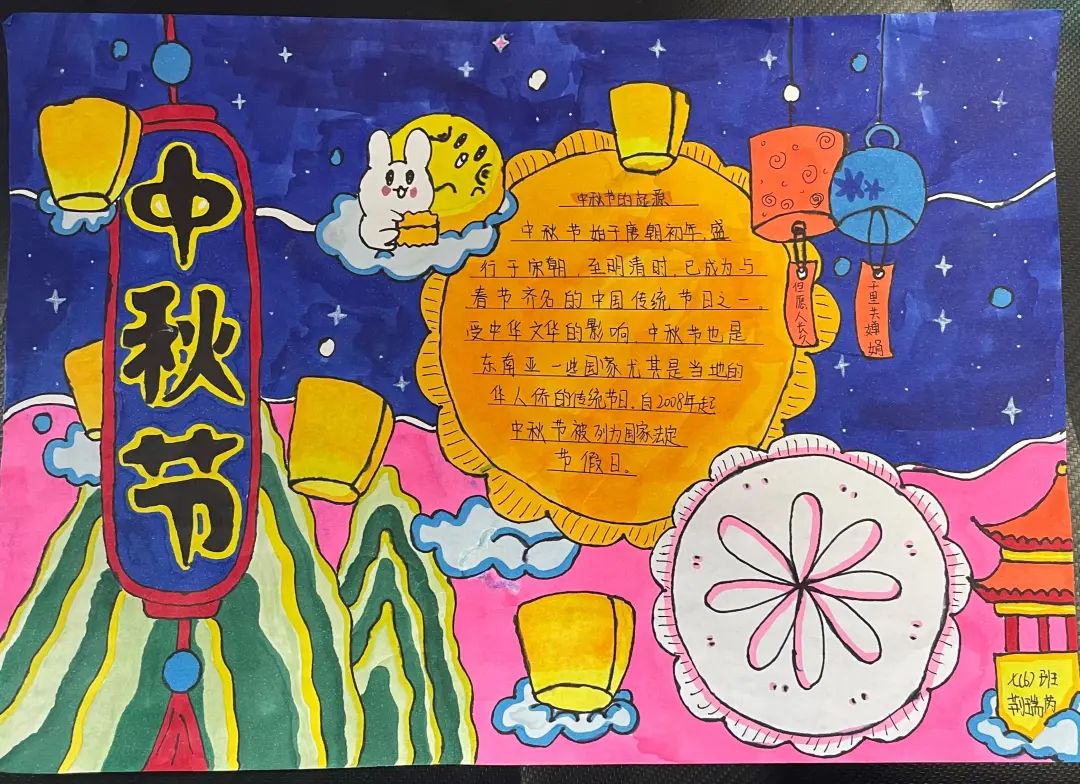 中秋节
中秋节的起源
中秋节始于唐朝初年,盛
行于宋朝,至明清时,已成为与
春节齐名的中国传统节日之一。
受中华文华的影响,中秋节也是
东南亚一些国家尤其是当地的
华人侨的传统节日。自2008年起
中秋节被列为国家法定
节假日。
但愿人长久
千里共婵娟
七(6)班